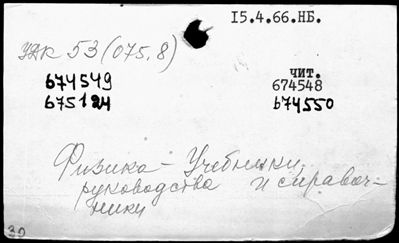 15.4.66.НБ.
УДК 53(075.8)
чит.
674549 674548
675124 674550
Физика - Учебники,
руководства и справоч-
ники
30